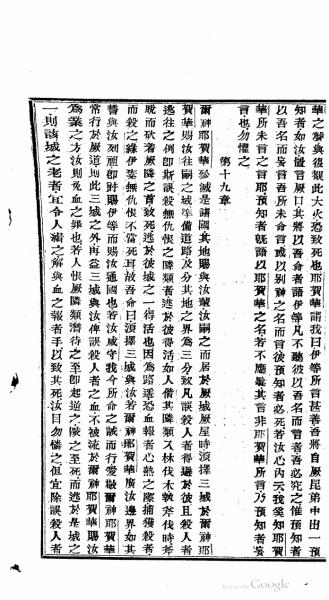 華之聲與復觀此大火恐致死也耶賀華謂我曰伊等所言甚善吾將自厥昆弟中出一預
知者如汝置言厥口其將以吾命者語伊等凡不聽彼以吾名而言者吾必究之惟預知者
以吾名而妄言吾所未命言或以别神之名而言彼預知者必死若汝心內云我奚知耶賀
華所未言之言耶預知者旣語以耶賀華之名若不應驗其言非耶賀華所言乃預知者妄
言也勿懼之
第十九章
爾神耶賀華殄滅是諸國其地賜與汝輩汝嗣之而居於厥城厥屋時須擇三城於爾神耶
賀華賜汝往嗣之城準備道路及分其地之界為三分致凡誤殺人者得避於彼且殺人者
逃往之例卽斯誤殺無仇恨之隣類者逃於彼得活如人偕其隣類入林伐木執斧伐時斧
脫而砍着厥隣之首致死逃於彼城之一得活也因為路遙恐血報者心熱之際捕獲殺者
而殺之錄伊素無仇恨不當死耳故吾命曰須擇三城與汝若爾神耶賀華廣汝邊界如其
誓與汝列祖卽時賜伊等而賜汝通國也若汝咸守我今所命之誡而行愛敬爾神耶賀華
常行於厥道則此三城之外再益三城與汝俾誤殺人者之血不被流於爾神耶賀華賜汝
為業之方汝則免血之罪也若人恨厥隣類潛待之至卽起逆之陵之至死而逃於是城之
一則該城之老者宜令人浦之解與血之報者手以致其死汝目勿憐之但宜除誤殺人者
Google